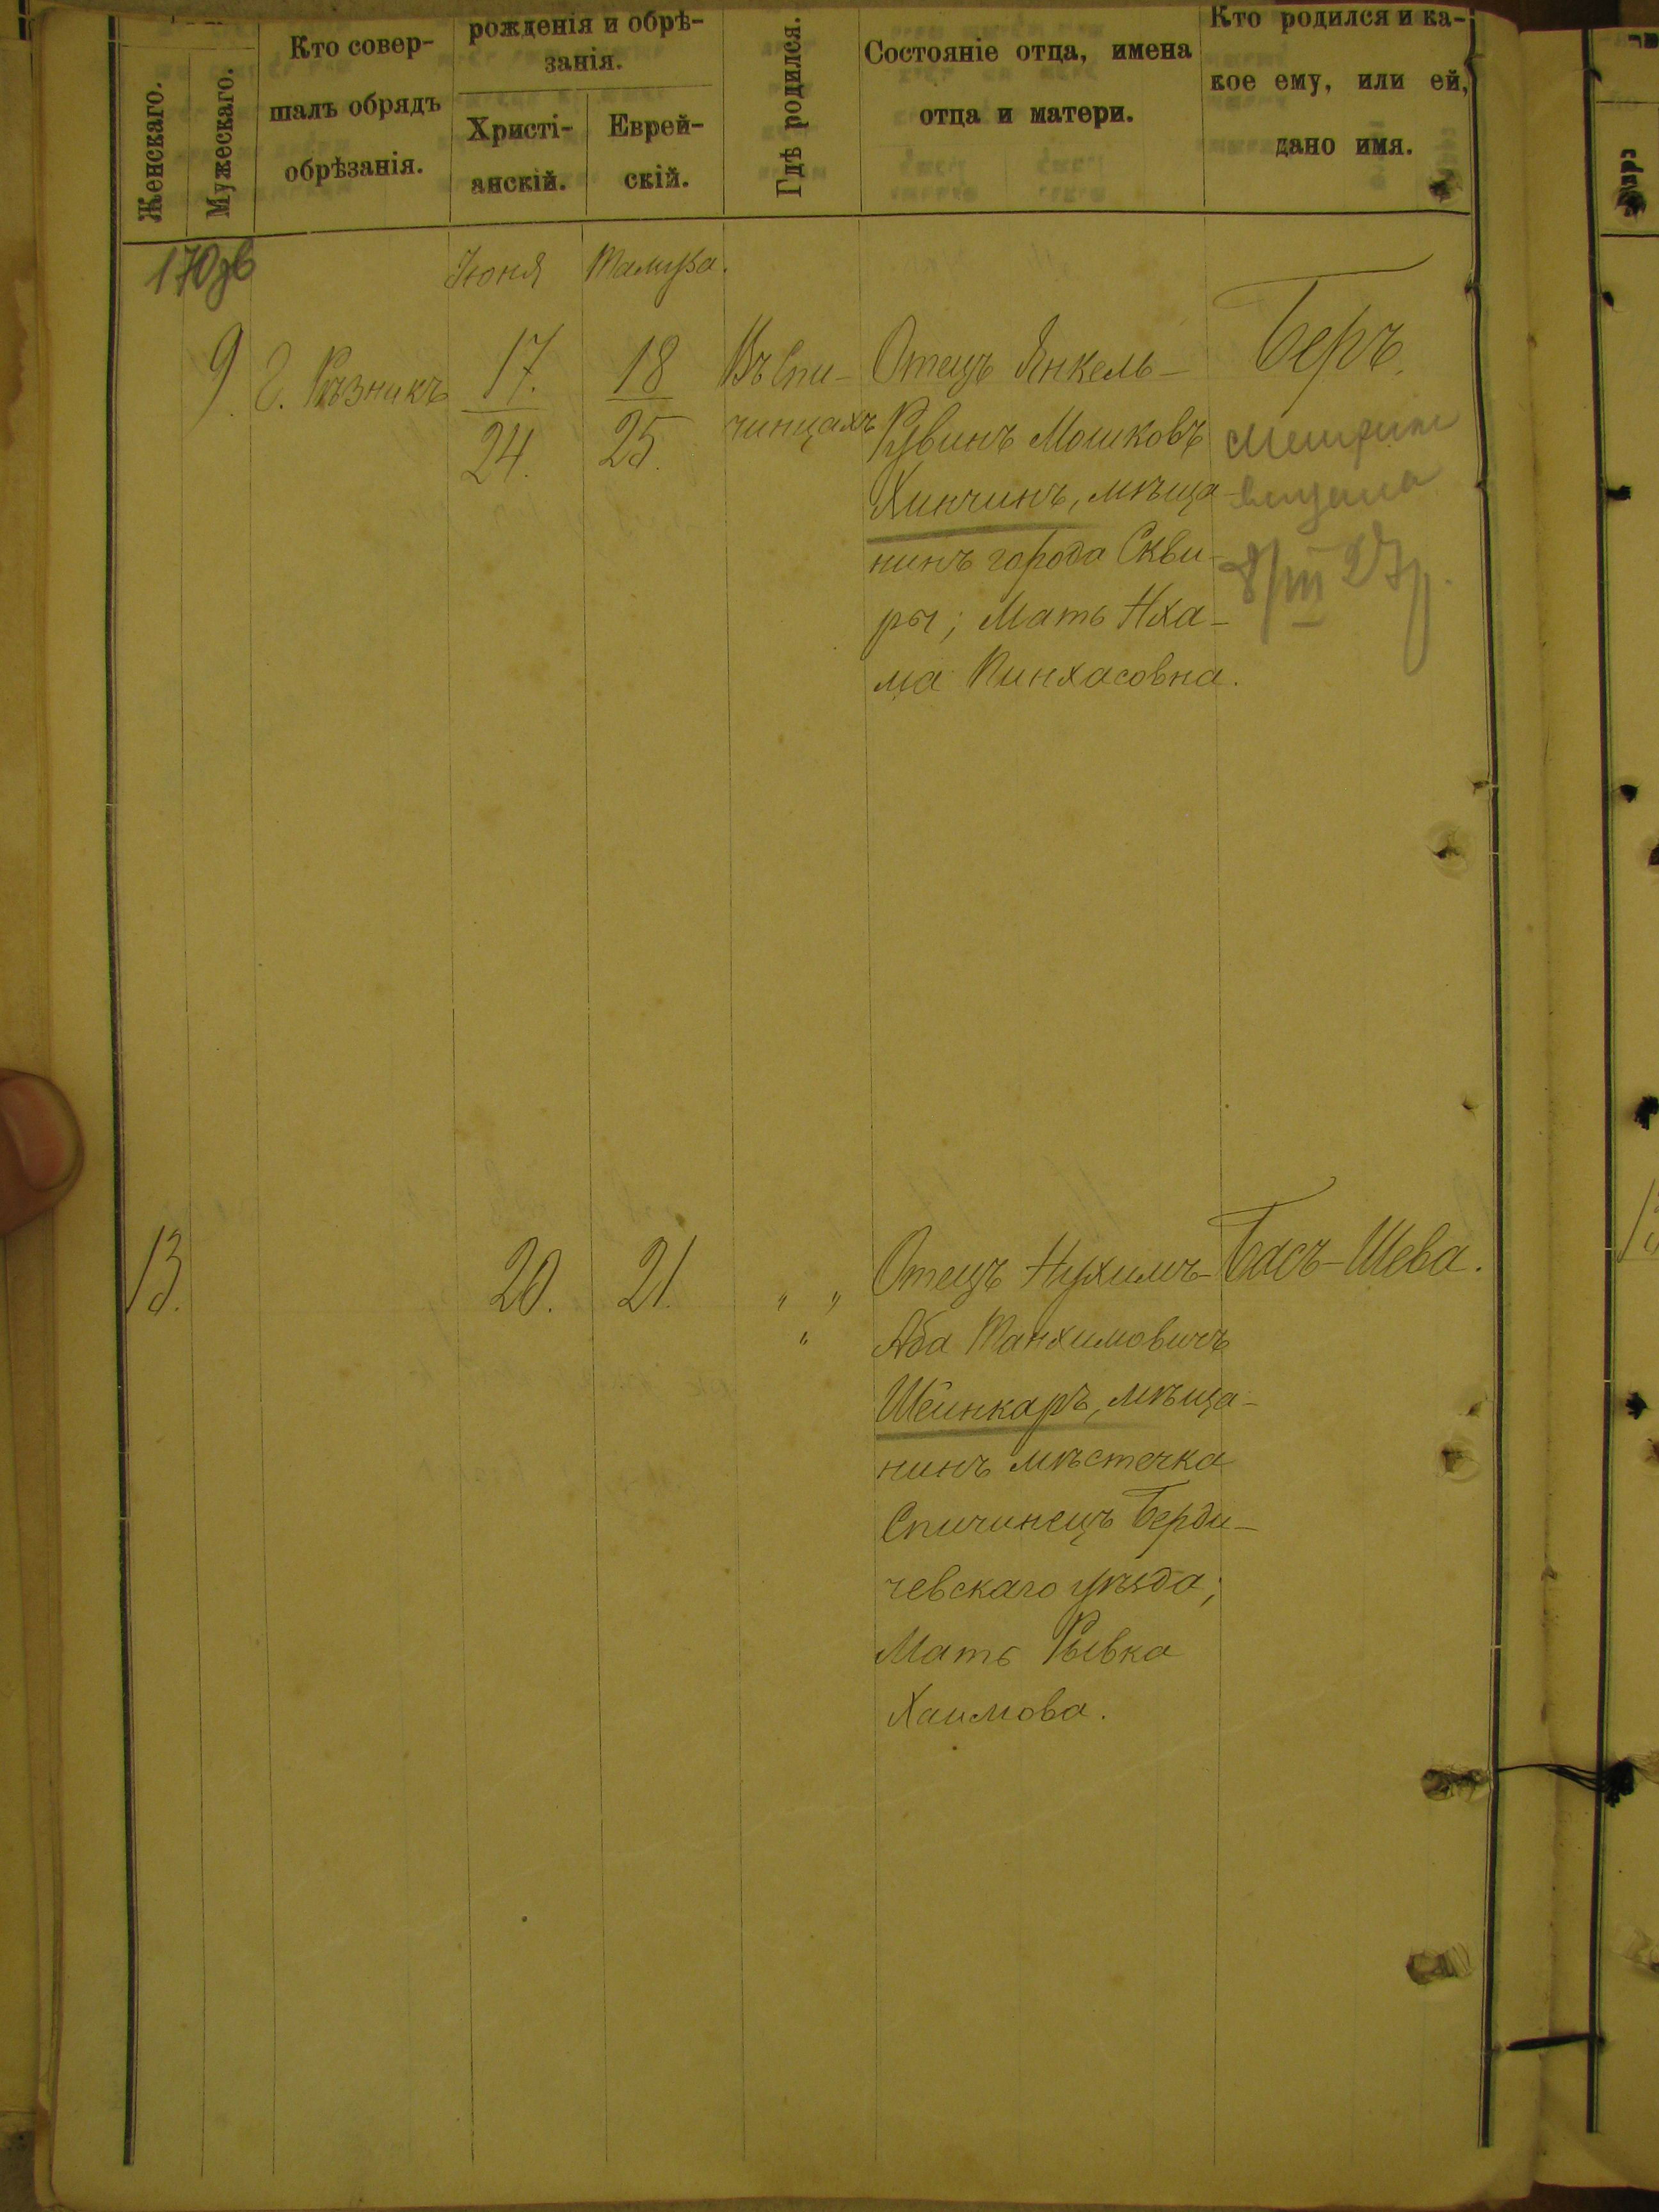 Женскаго.
Мужескаго.
Кто совер-
шалъ обрядъ
обрѣзанія.
рожденія и обрѣ-
занія.
Христі-
анскій.
Еврей-
скій.
Гдѣ родился.
Состояніе отца, имена
отца и матери.
Кто родился и ка-
кое ему, или ей,
дано имя.
170 зв
Іюня
Тамуза.
9.
Г. Рѣзникъ
17.
24.
18
25.
Въ Спи-
чинцахъ
Отецъ Янкель-
Рувинъ Мошковъ
Хинчинъ, мѣща-
нинъ города Скви-
ры; Мать Нха-
ма Пинхасовна.
Беръ.
8/III 27 р.
13.
20.
21.
" "
"
Отецъ Нухимъ-
Аба Танхимовичъ
Шеинкаръ, мѣща-
нинъ мѣстечка
Спичинецъ Берди-
чевскаго уѣзда;
Мать Рывка
Хаимова.
Бась-Шева.